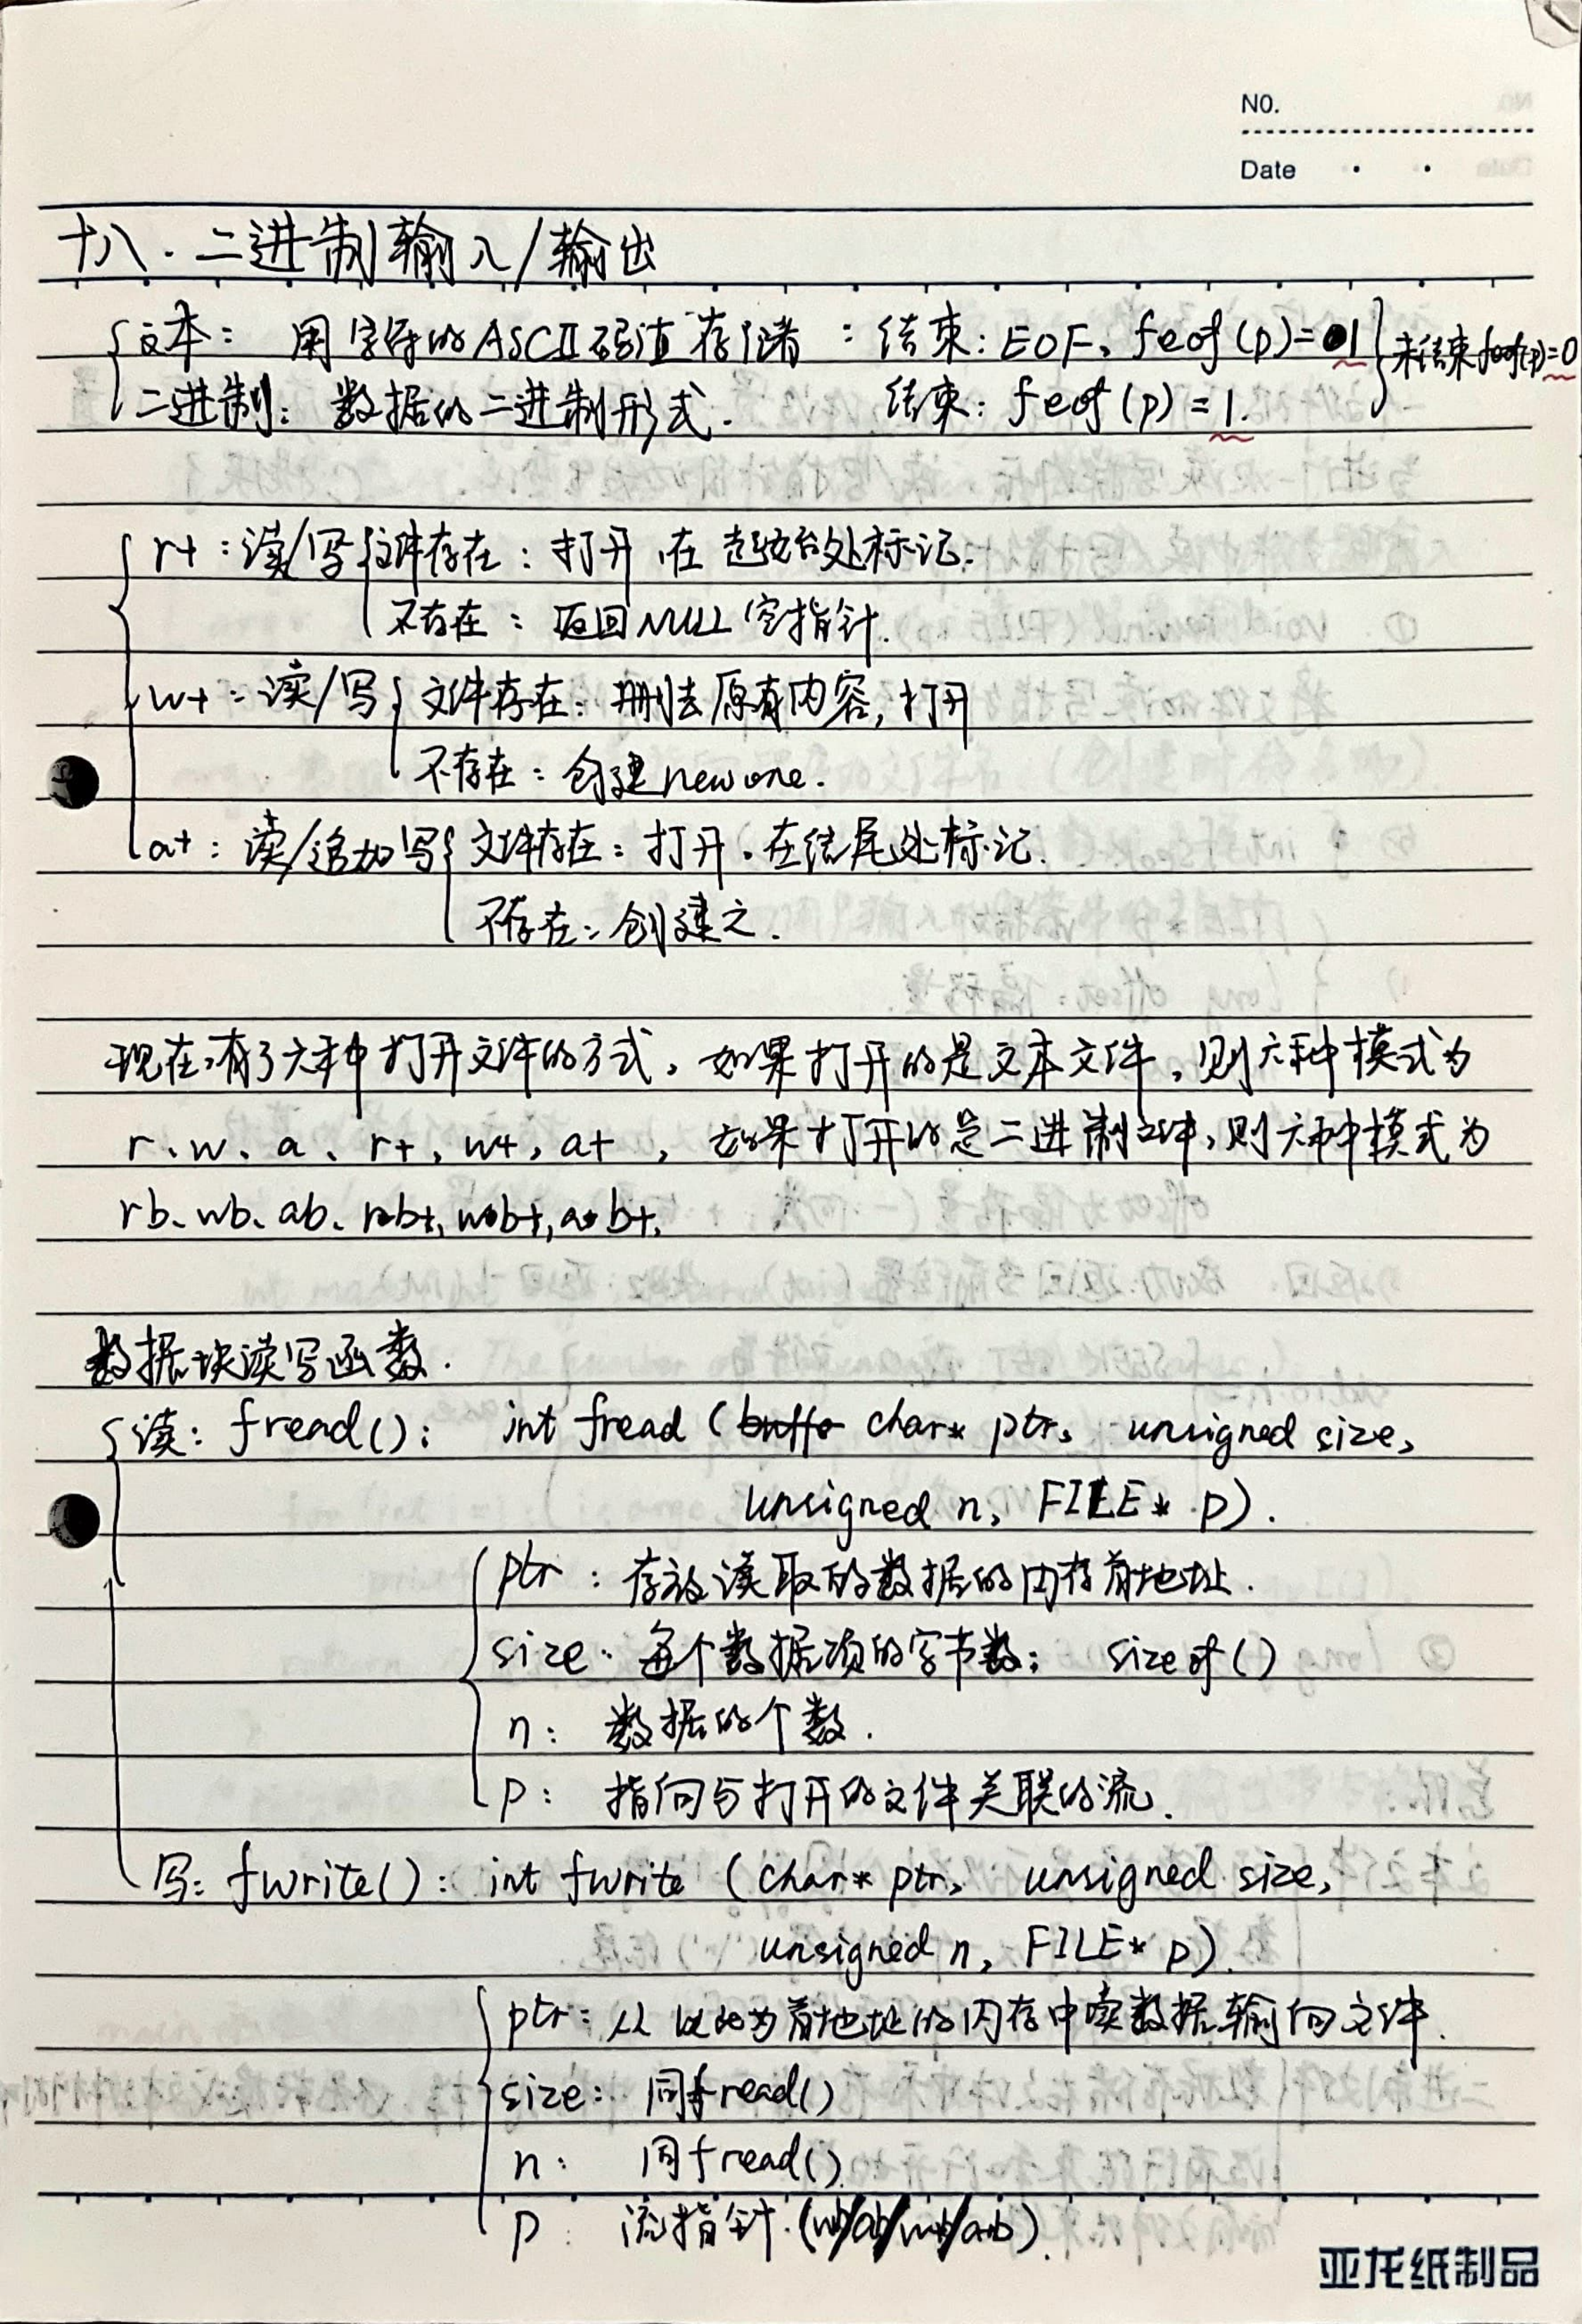 NO.
Date
十八.二进制输入/输出
文本: 用字符的ASCII码值存储: 结束: EOF、feof(p)=1 未结束feof(p)=0
二进制: 数据的二进制形式. 结束: feof(p)=1.
r+:读/写 文件存在:打开,在起始处标记.
不存在: 返回NULL空指针.
w+:读/写 文件存在: 删去原有内容,打开
不存在: 创建new one.
a+: 读/追加写 文件存在: 打开.在结尾处标记.
不存在: 创建之.
现在有了六种打开文件的方式,如果打开的是文本文件,则六种模式为
r、w、a、r+,w+,a+,如果打开的是二进制文件,则六种模式为
rb、wb、ab、rb+,wb+,ab+.
数据块读写函数.
读: fread(): int fread (char* ptr, unsigned size,
unsigned n, FILE* p).
ptr: 存放读取的数据的内存首地址.
size: 每个数据项的字节数; sizeof()
n: 数据的个数.
p: 指向与打开的文件关联的流.
写: fwrite(): int fwrite (char* ptr, unsigned size,
unsigned n, FILE* p).
ptr: 从以此为首地址的内存中读数据,输向文件.
size: 同fread()
n: 同fread().
p: 流指针.
亚龙纸制品